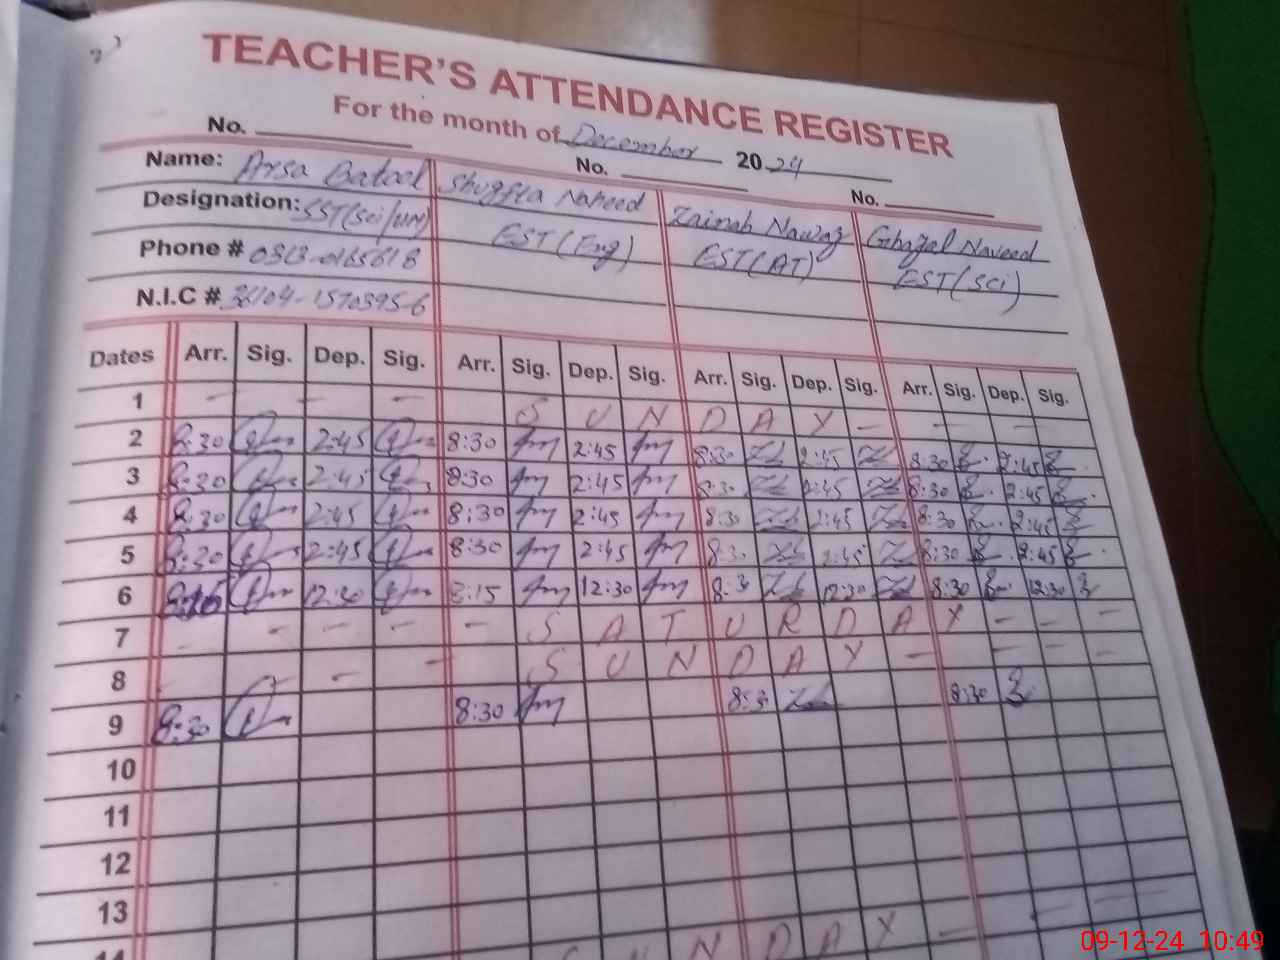 TEACHER'S ATTENDANCE REGISTER
For the month of December 2024
No. No. No.
Name: Arsa Batool Shugfta Naheed Zainab Nawaz Ghazal Naveed
Designation: SST(Sci/ EST(Eng) EST(AT) EST(Sci)
Phone #
N.I.C #
Dates Arr. Sig. Dep. Sig. Arr. Sig. Dep. Sig. Arr. Sig. Dep. Sig. Arr. Sig. Dep. Sig.
1 - - - S U N D A Y - - - -
2 8:30 2:45 8:30 2:45 8:30 2:45 8:30 2:45
3 8:30 2:45 8:30 2:45 8:30 2:45 8:30 2:45
4 8:30 2:45 8:30 2:45 8:30 2:45 8:30 2:45
5 8:30 2:45 8:30 2:45 8:30 2:45 8:30 2:45
6 12:30 8:15 12:30 8:3 12:30 8:30 12:30
7 - - - - - S A T U R D A Y - - -
8 - - S U N D A Y - - - -
9 8:30 8:30 8:3 8:30
10
11
12
13
14 S U N D A Y -
09-12-24 10:49